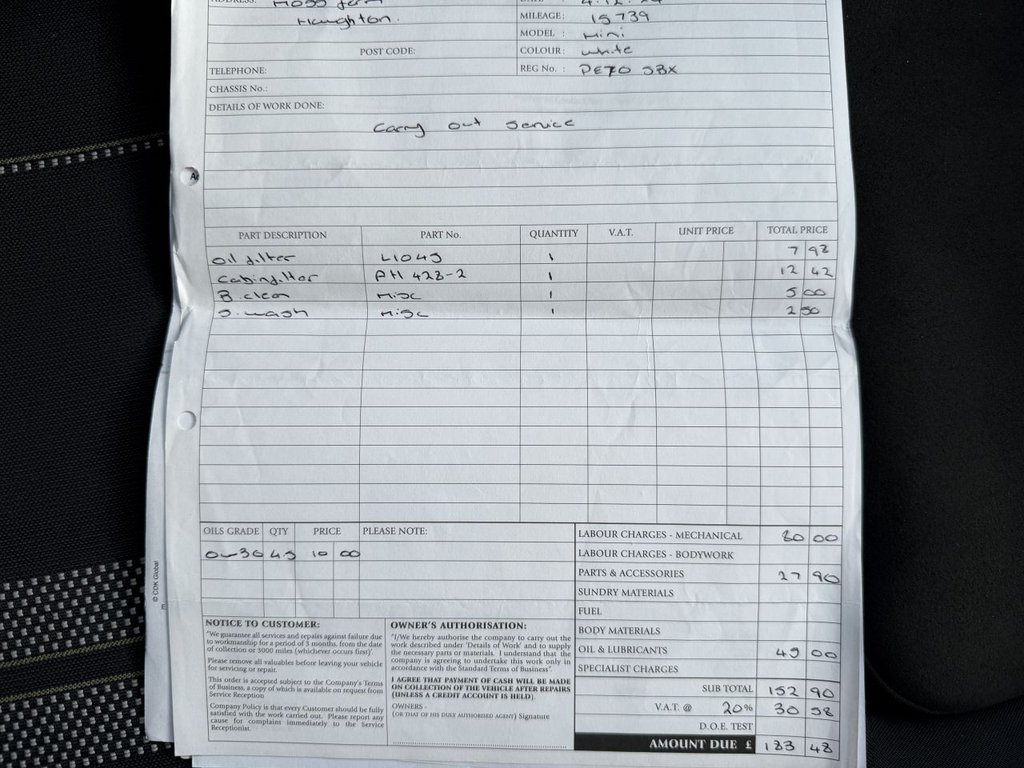 ADDRESS: Moss farm
Haughton.
MILEAGE: 15739
MODEL : Mini
POST CODE:
COLOUR: white
TELEPHONE:
REG No. : PE70 SBX
CHASSIS No.:
DETAILS OF WORK DONE:
Carry out service
PART DESCRIPTION PART No. QUANTITY V.A.T. UNIT PRICE TOTAL PRICE
Oil filter L1045 1 7 98
Cabin filter PH 428-2 1 12 42
B.clean Misc 1 5 00
S.wash Misc 1 2 50
OILS GRADE QTY PRICE PLEASE NOTE:
0w-30 45 10 00
LABOUR CHARGES - MECHANICAL 80 00
LABOUR CHARGES - BODYWORK
PARTS & ACCESSORIES 27 90
SUNDRY MATERIALS
FUEL
BODY MATERIALS
OIL & LUBRICANTS 45 00
SPECIALIST CHARGES
SUB TOTAL 152 90
V.A.T. @ 20% 30 58
D.O.E. TEST
AMOUNT DUE £ 183 48
NOTICE TO CUSTOMER:
"We guarantee all services and repairs against failure due
to workmanship for a period of 3 months, from the date
of collection or 3000 miles (whichever occurs first)".
Please remove all valuables before leaving your vehicle
for servicing or repair.
This order is accepted subject to the Company's Terms
of Business, a copy of which is available on request from
Service Reception
Company Policy is that every Customer should be fully
satisfied with the work carried out. Please report any
cause for complaint immediately to the Service
Receptionist.
OWNER'S AUTHORISATION:
"I/We hereby authorise the company to carry out the
work described under 'Details of Work' and to supply
the necessary parts or materials. I understand that the
company is agreeing to undertake this work only in
accordance with the Standard Terms of Business".
I AGREE THAT PAYMENT OF CASH WILL BE MADE
ON COLLECTION OF THE VEHICLE AFTER REPAIRS
(UNLESS A CREDIT ACCOUNT IS HELD).
OWNERS -
(OR THAT OF HIS DULY AUTHORISED AGENT) Signature
© CDK Global